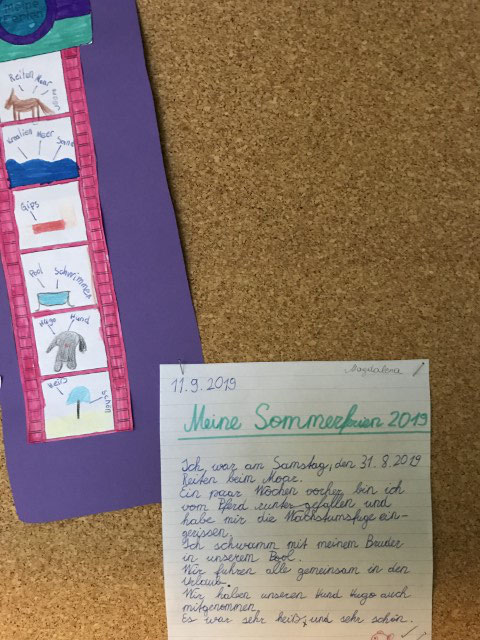 meine
Ferien
Reiten Moar
Kroatien Meer Sonne
Gips
Pool Schwimmen
Hugo Hund
heiß
schön
Magdalena
11.9.2019
Meine Sommerferien 2019
Ich war am Samstag, den 31.8.2019
Reiten beim Moar.
Ein paar Wochen vorher bin ich
vom Pferd runter gefallen und
habe mir die Wachstumsfuge ein-
gerissen
Ich schwamm mit meinem Bruder
in unserem Pool.
Wir fuhren alle gemeinsam in den
Urlaub.
Wir haben unseren Hund Hugo auch
mitgenommen
Es war sehr heiß, und sehr schön.